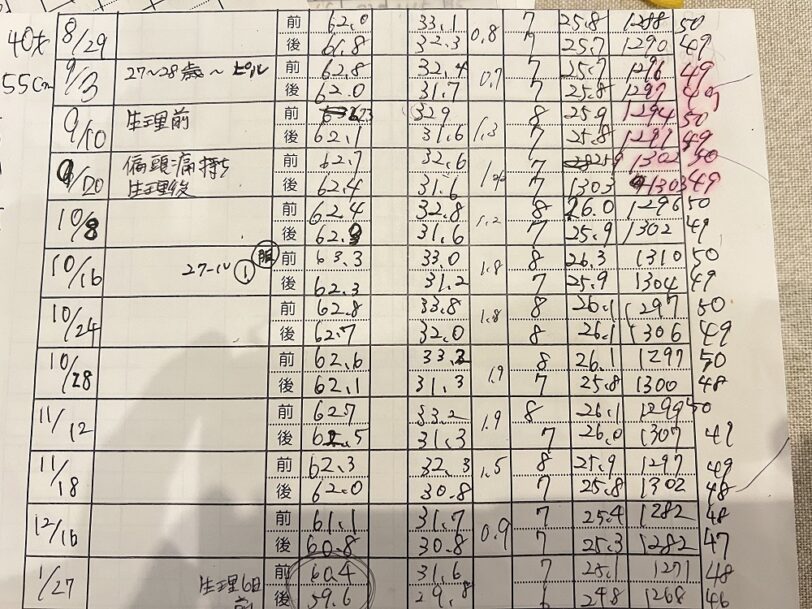 40才 8/29 前 62.0 33.1 0.8 7 25.8 1288 50
後 61.8 32.3 7 25.7 1290 49
55cm 9/3 27~28歳~ピル 前 62.8 32.4 0.7 7 25.7 1296 49
後 62.0 31.7 7 25.8 1297
9/10 生理前 前 32.9 1.3 8 25.9 1294 50
後 62.1 31.6 7 25.8 1297 49
9/20 偏頭痛持ち 前 62.7 32.6 7 1302 50
生理後 後 62.4 31.6 7 1303 1303 49
10/8 前 62.4 32.8 1.2 8 26.0 1296 50
後 31.6 7 25.9 1302 49
10/16 前 63.3 33.0 1.8 8 26.3 1310 50
① 後 62.3 31.2 7 25.9 1304 49
10/24 前 62.8 33.8 1.8 8 26.1 1297 50
後 62.7 32.0 8 26.1 1306 49
10/28 前 62.6 1.9 8 26.1 1297 50
後 62.1 31.3 7 25.8 1300 48
11/12 前 62.7 33.2 1.9 8 26.1 1299 50
後 62.5 31.3 7 26.0 1307
11/18 前 62.3 32.3 1.5 8 25.9 1297 49
後 62.0 30.8 7 25.8 1302 48
12/16 前 61.1 31.7 0.9 7 25.4 1282 48
後 60.8 30.8 7 25.3 1282 47
1/27 生理6日 前 60.4 31.6 7 25.1 1271 48
前 後 59.6 29.8 24.8 1268 46